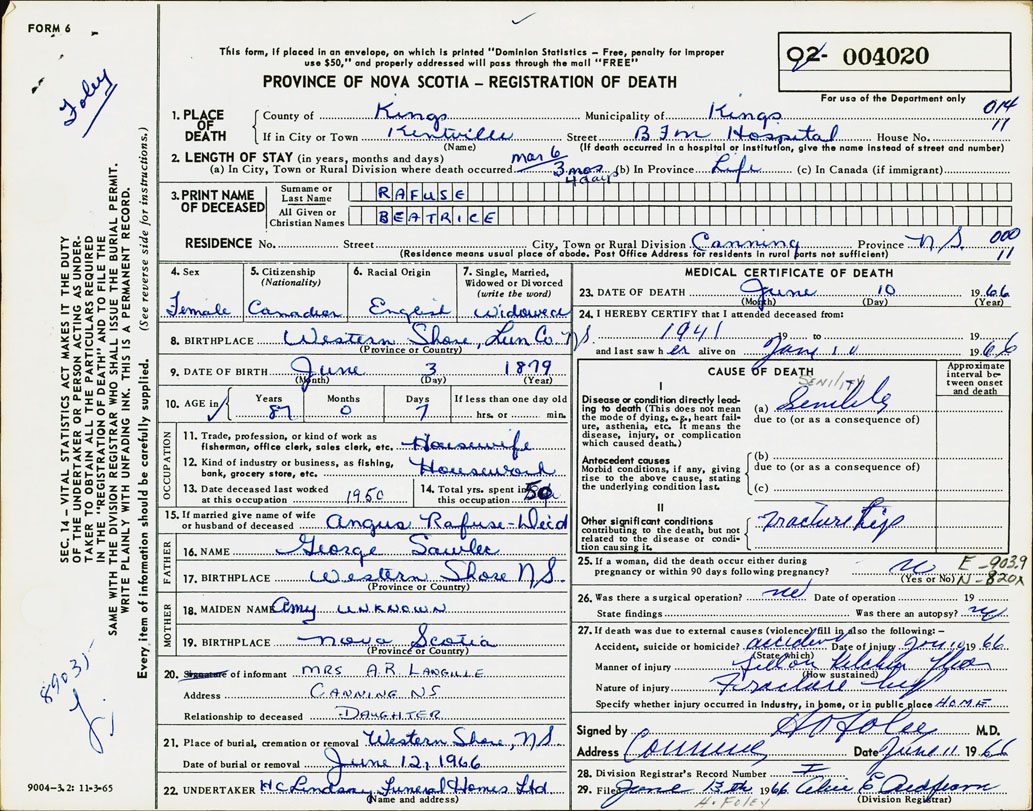 FORM 6
Foley
This form, if placed in an envelope, on which is printed "Dominion Statistics – Free, penalty for improper
use $50," and properly addressed will pass through the mail "FREE"
PROVINCE OF NOVA SCOTIA – REGISTRATION OF DEATH
02- 004020
For use of the Department only
014
11
1. PLACE OF DEATH
County of Kings Municipality of Kings
If in City or Town Kentville Street B F M Hospital House No.
(Name) (If death occurred in a hospital or institution, give the name instead of street and number)
2. LENGTH OF STAY (in years, months and days) Mar 6
(a) In City, Town or Rural Division where death occurred 3 mos 4 days (b) In Province Life (c) In Canada (if immigrant)
3. PRINT NAME OF DECEASED
Surname or Last Name RAFUSE
All Given or Christian Names BEATRICE
RESIDENCE No. Street City, Town or Rural Division Canning Province N S. 000
(Residence means usual place of abode. Post Office Address for residents in rural parts not sufficient) 11
4. Sex
Female
5. Citizenship
(Nationality)
Canadian
6. Racial Origin
English
7. Single, Married,
Widowed or Divorced
(write the word)
Widowed
8. BIRTHPLACE Western Shore, Lun Co. NS
(Province or Country)
9. DATE OF BIRTH June 3 1879
(Month) (Day) (Year)
10. AGE Years Months Days If less than one day old
87 0 7 hrs. or min.
OCCUPATION
11. Trade, profession, or kind of work as
fisherman, office clerk, sales clerk, etc. Housewife
12. Kind of industry or business, as fishing,
bank, grocery store, etc. Housework
13. Date deceased last worked
at this occupation 1950
14. Total yrs. spent in
this occupation 50
15. If married give name of wife
or husband of deceased Angus Rafuse - Dec'd
FATHER
16. NAME George
17. BIRTHPLACE Western Shore NS.
(Province or Country)
MOTHER
18. MAIDEN NAME Amy UNKNOWN
19. BIRTHPLACE Nova Scotia
(Province or Country)
20. Signature of informant MRS A.R. LANGILLE
Address CANNING NS
Relationship to deceased DAUGHTER
21. Place of burial, cremation or removal Western Shore, NS
Date of burial or removal June 12, 1966
22. UNDERTAKER H C Lindsay Funeral Homes Ltd
(Name and address)
MEDICAL CERTIFICATE OF DEATH
23. DATE OF DEATH June 10 1966
(Month) (Day) (Year)
24. I HEREBY CERTIFY that I attended deceased from:
1941 19 to 19
and last saw her alive on June 10 1966
CAUSE OF DEATH
Approximate interval between onset and death
SENILITY
I
Disease or condition directly leading
to death (This does not mean
the mode of dying, e.g., heart failure,
asthenia, etc. It means the
disease, injury, or complication
which caused death.)
(a) Senility
due to (or as a consequence of)
Antecedent causes
Morbid conditions, if any, giving
rise to the above cause, stating
the underlying condition last.
(b)
due to (or as a consequence of)
(c)
II
Other significant conditions
contributing to the death, but not
related to the disease or condition
causing it.
Fracture hip
25. If a woman, did the death occur either during
pregnancy or within 90 days following pregnancy? no
(Yes or No)
E -903.9
N-820X
26. Was there a surgical operation? no Date of operation 19
State findings Was there an autopsy? no
27. If death was due to external causes (violence) fill in also the following: –
Accident, suicide or homicide? accident Date of injury 66
(State which)
Manner of injury Kitchen floor
(How sustained)
Nature of injury Fracture hip
Specify whether injury occurred in industry, in home, or in public place HOME
Signed by M.D.
Address Canning Date June 11 1966
28. Division Registrar's Record Number
29. Filed June 13th 1966
(Division Registrar)
H. FOLEY
SEC. 14 – VITAL STATISTICS ACT MAKES IT THE DUTY
OF THE UNDERTAKER OR PERSON ACTING AS UNDERTAKER
TO OBTAIN ALL THE PARTICULARS REQUIRED
IN THE "REGISTRATION OF DEATH" AND TO FILE THE
SAME WITH THE DIVISION REGISTRAR WHO SHALL ISSUE THE BURIAL PERMIT.
WRITE PLAINLY WITH UNFADING INK. THIS IS A PERMANENT RECORD.
Every item of information should be carefully supplied. (See reverse side for instructions.)
9004-3.2: 11-3-65